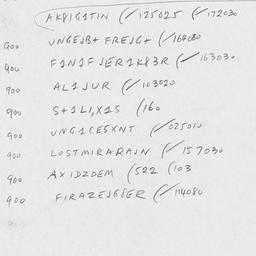 AK8IGITIN (/125025 (/172030
900 UNGEJB+ FREJG+ (/164080
900 F1N1FJER1K83R (/163030
900 AL1JUR (/103020
900 S+1LI,X1S (160
900 UNG1CE5XNT (/025010
900 LOSTMIRARAJN (/157030
900 AXIDZDEM (522 (103
900 FIRAZEJEGER (/114080